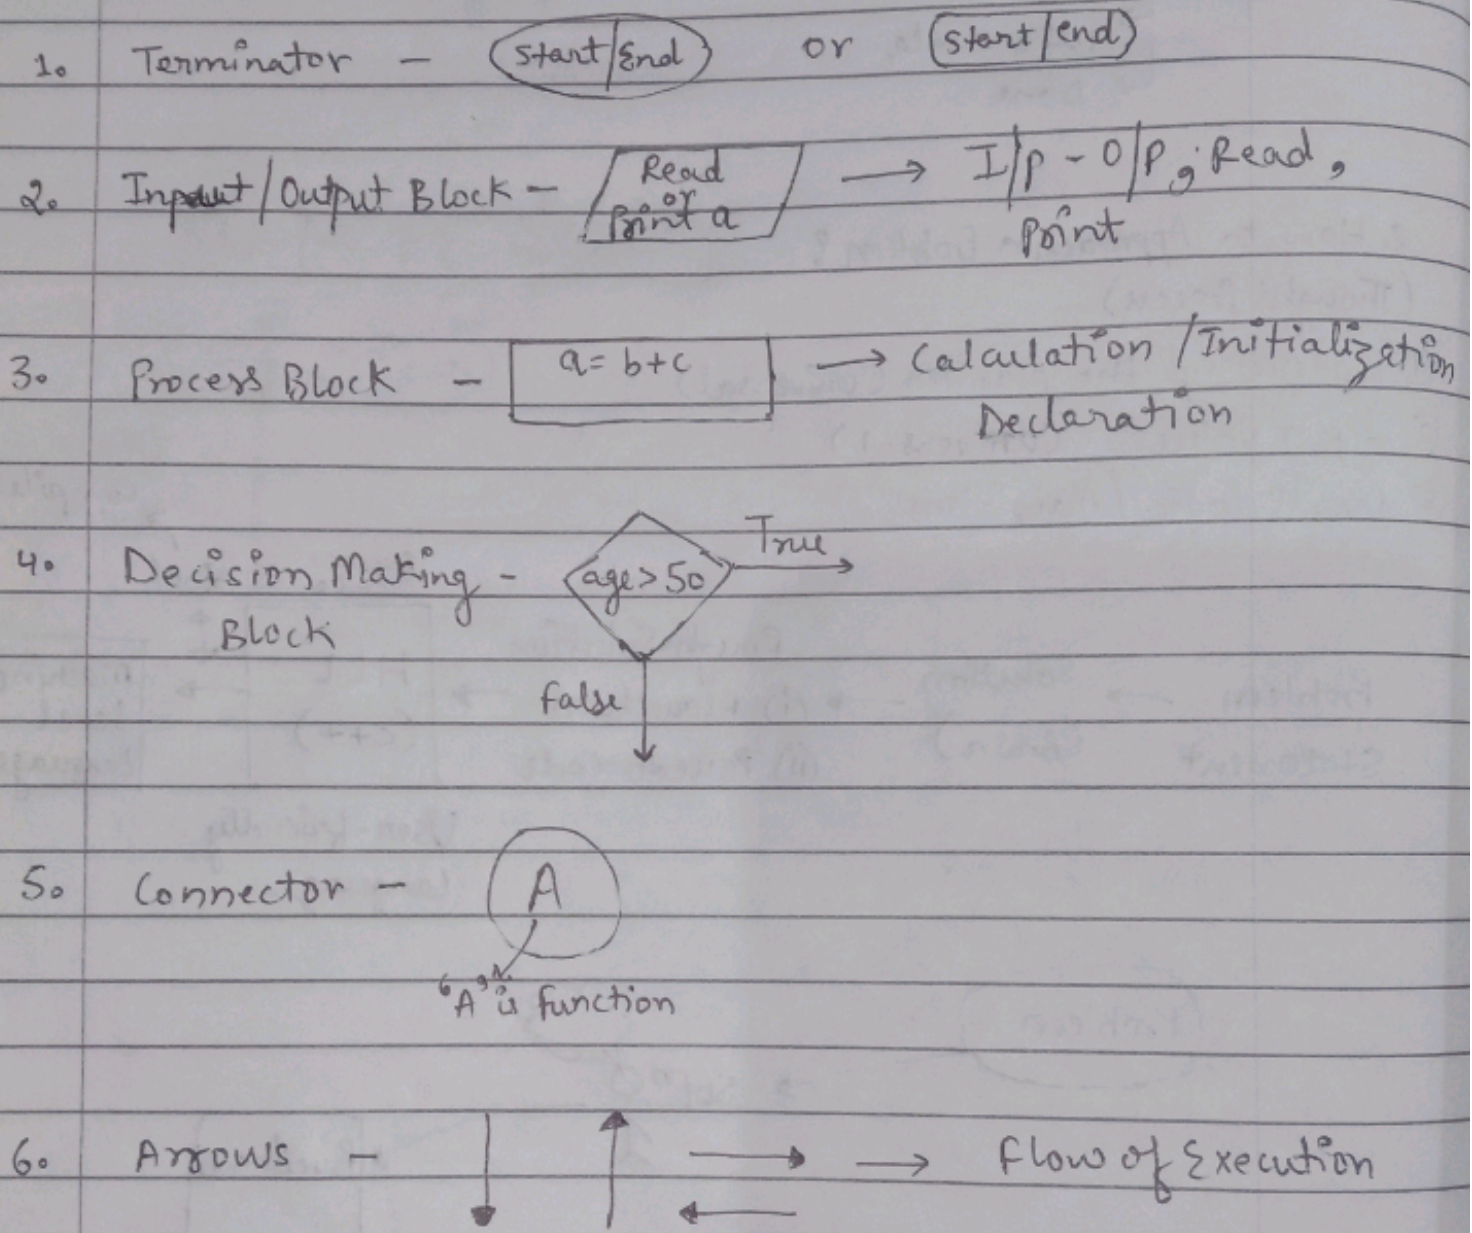 1. Terminator - Start/End or Start/end
2. Input/Output Block - Read or Print a → I/p - O/P, Read,
Print
3. Process Block - a = b+c → Calculation / Initialization
Declaration
4. Decision Making - age > 50 True
Block
false
5. Connector - A
"A" is function
6. Arrows - → flow of Execution